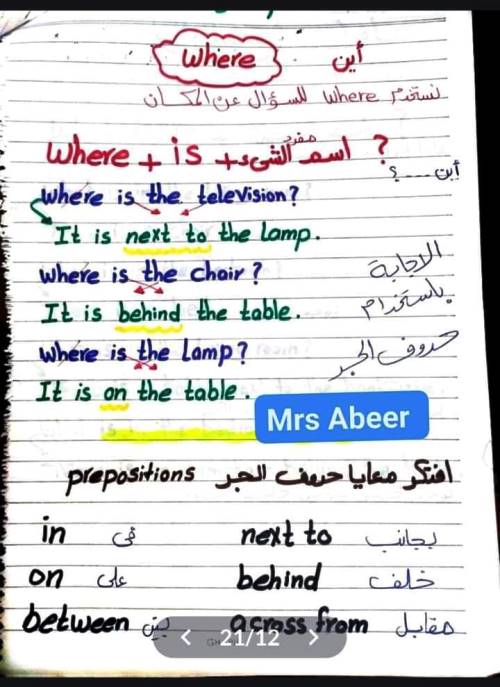 where أين
نستخدم where للسؤال عن المكان
where + is + اسم الشىء مفرد ?
أين ....؟
where is the television?
It is next to the lamp.
where is the chair?
It is behind the table.
where is the lamp?
It is on the table.
الاجابة باستخدام حروف الجر
Mrs Abeer
افتكر معايا حروف الجر prepositions
in فى next to بجانب
on على behind خلف
between بين across from مقابل
21/12